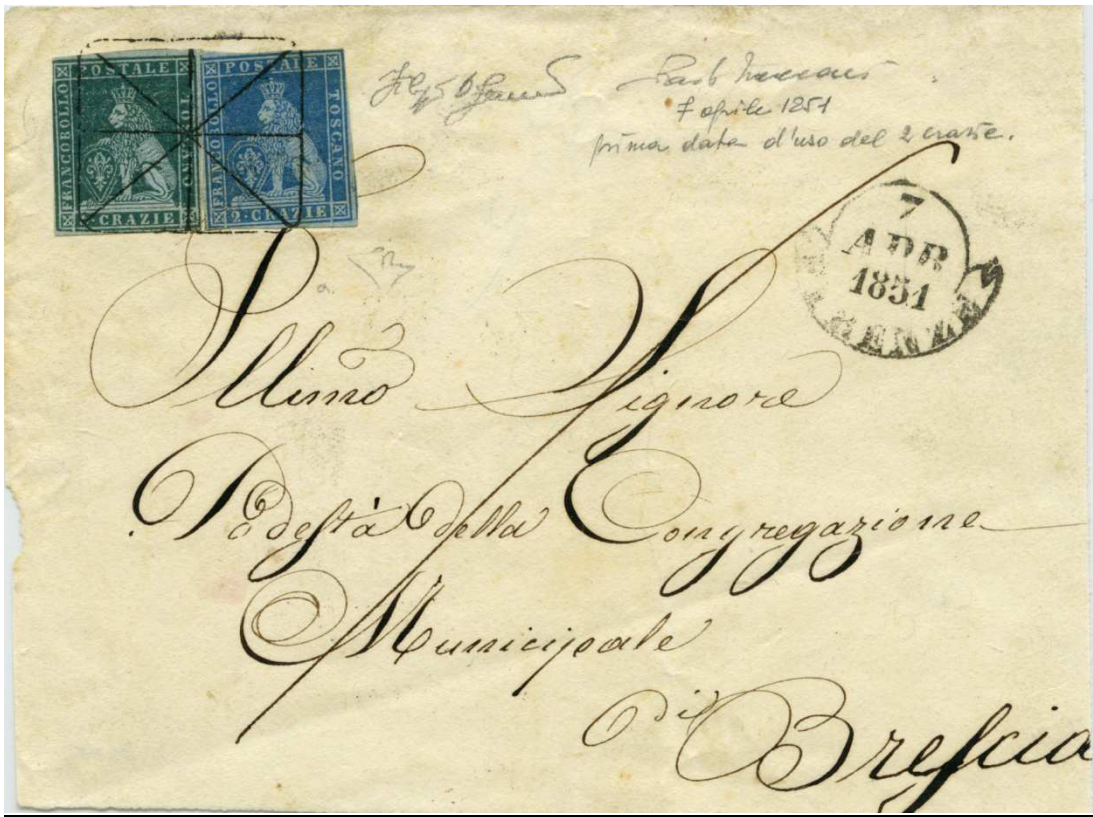 POSTALE
FRANCOBOLLO
CRAZIE
POSTALE
FRANCOBOLLO
TOSCANO
2 · CRAZIE
7 aprile 1851
prima data d'uso del 2 crazie.
7
APR
1851
Illmo Signore
Podestà della Congregazione
Municipale
di Brescia